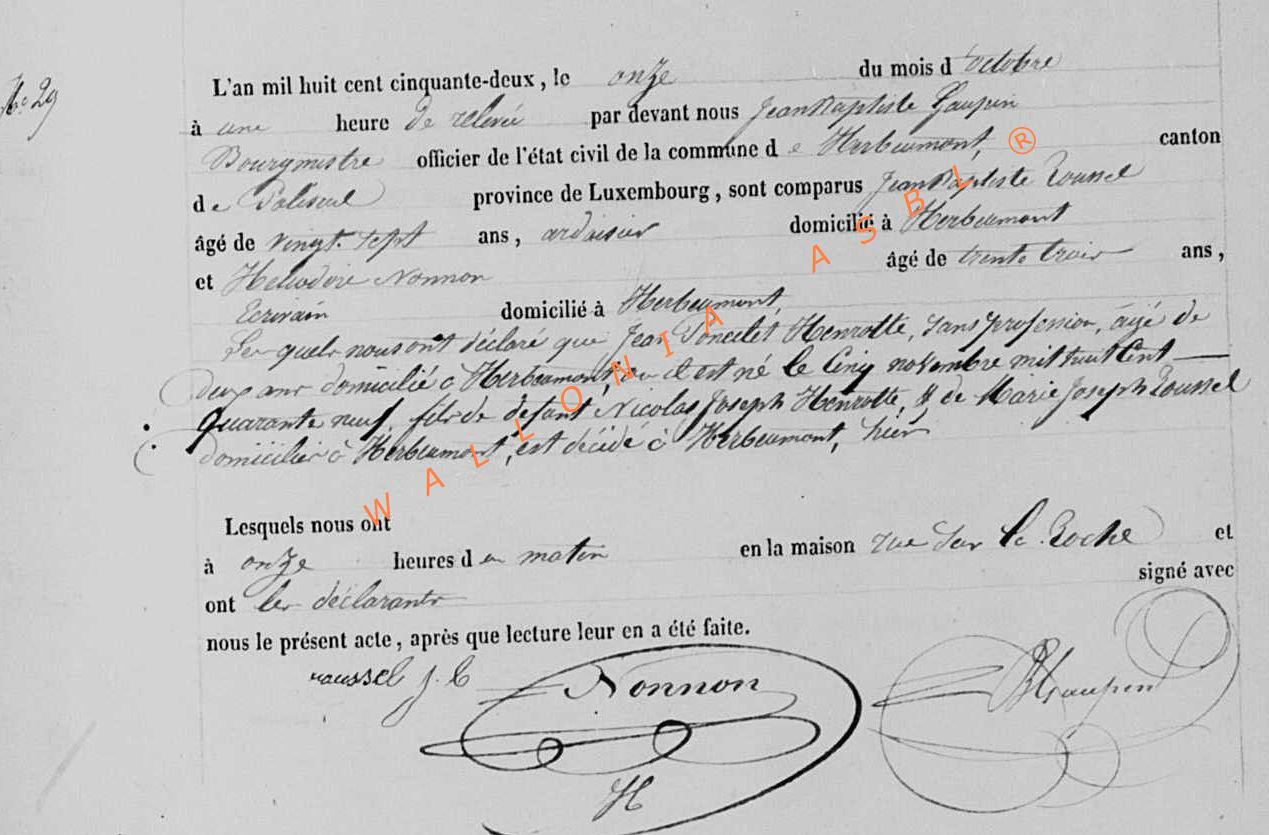 No 29
L'an mil huit cent cinquante-deux, le onze du mois d'octobre
à une heure de relevée par devant nous Jean Baptiste Gaupin
Bourgmestre officier de l'état civil de la commune de Herbeumont, canton
de Paliseul province de Luxembourg, sont comparus Jean Baptiste Roussel
âgé de vingt-sept ans, ardoisier domicilié à Herbeumont
et Heliodore Nonnon âgé de trente trois ans,
Ecrivain domicilié à Herbeumont,
Les quels nous ont déclaré que Jean Poncelet Henrotte, sans profession, âgé de
deux ans domicilié à Herbeumont, où il est né le cinq novembre mil huit cent
quarante neuf, fils de défunt Nicolas Joseph Henrotte, & de Marie Joseph Roussel
domiciliée à Herbeumont, est décédé à Herbeumont, hier
Lesquels nous ont
à onze heures du matin en la maison rue sur la Roche et
ont les déclarants signé avec
nous le présent acte, après que lecture leur en a été faite.
roussel j. b Nonnon JBGaupin
H
WALLONIA ASBL ®